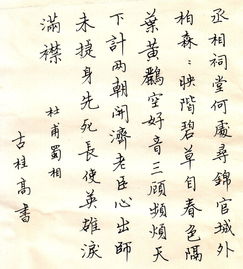 丞相祠堂何處尋錦官城外
柏森〻映階碧草自春色隔
葉黃鸝空好音三顧頻煩天
下計兩朝開濟老臣心出師
未捷身先死長使英雄淚
滿襟
杜甫蜀相
古桂高書